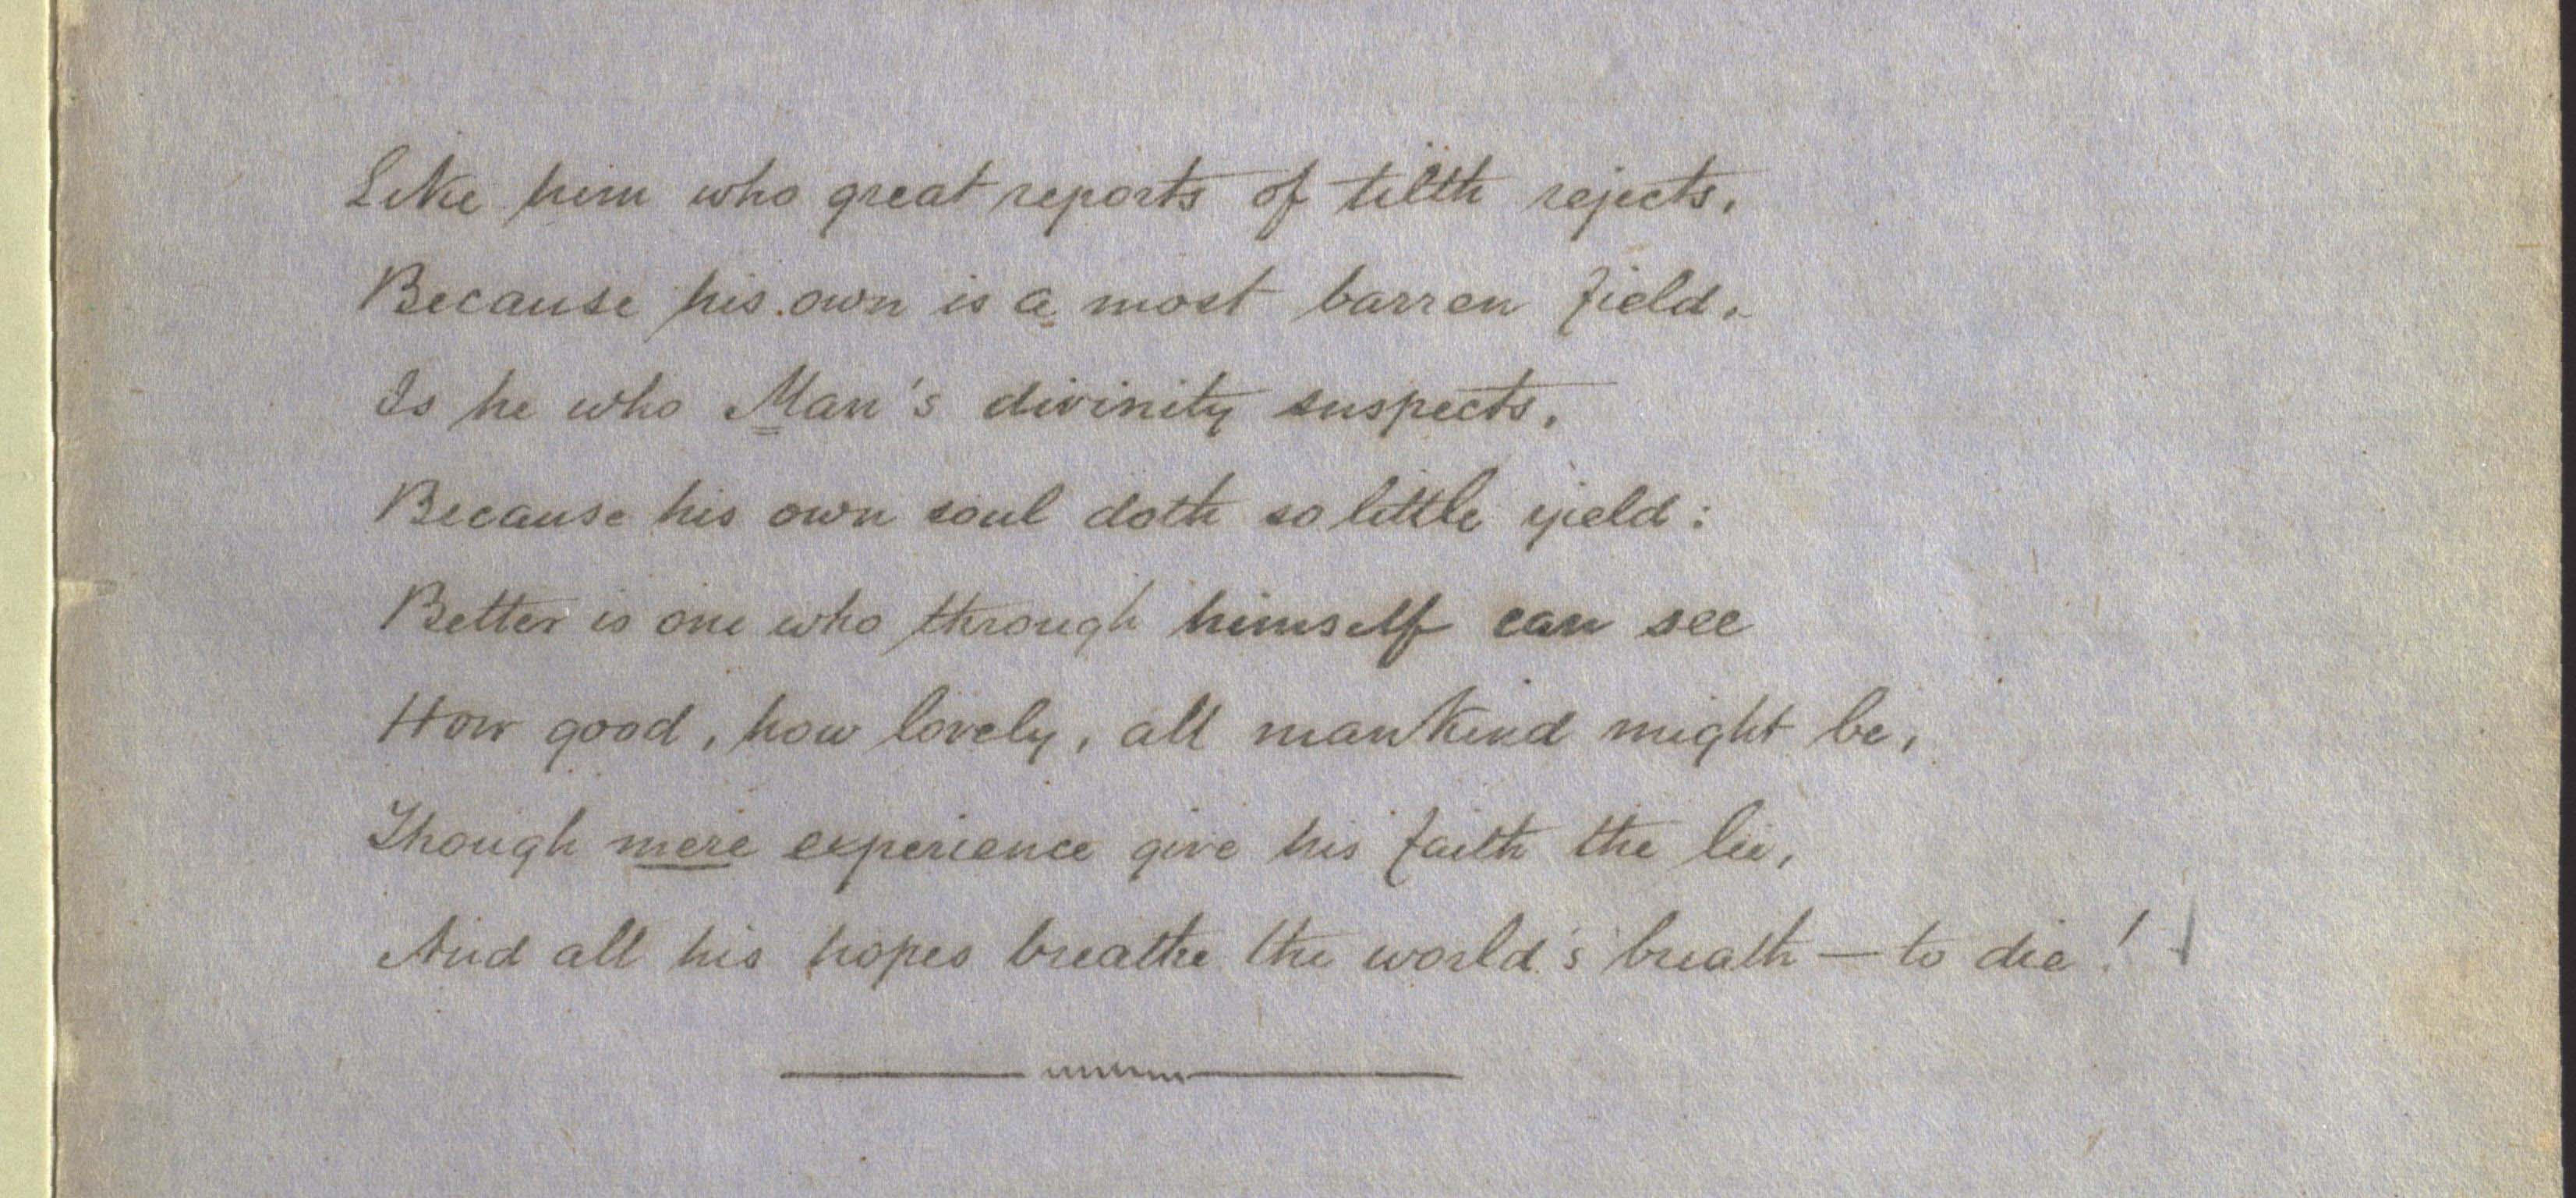 Like him who great reports of tilth rejects,
Because his own is a most barren field,
Is he who Man's divinity suspects,
Because his own soul doth so little yield:
Better is one who through himself can see
How good, how lovely, all mankind might be,
Though mere experience give his faith the lie,
And all his hopes breathe the world's breath — to die!